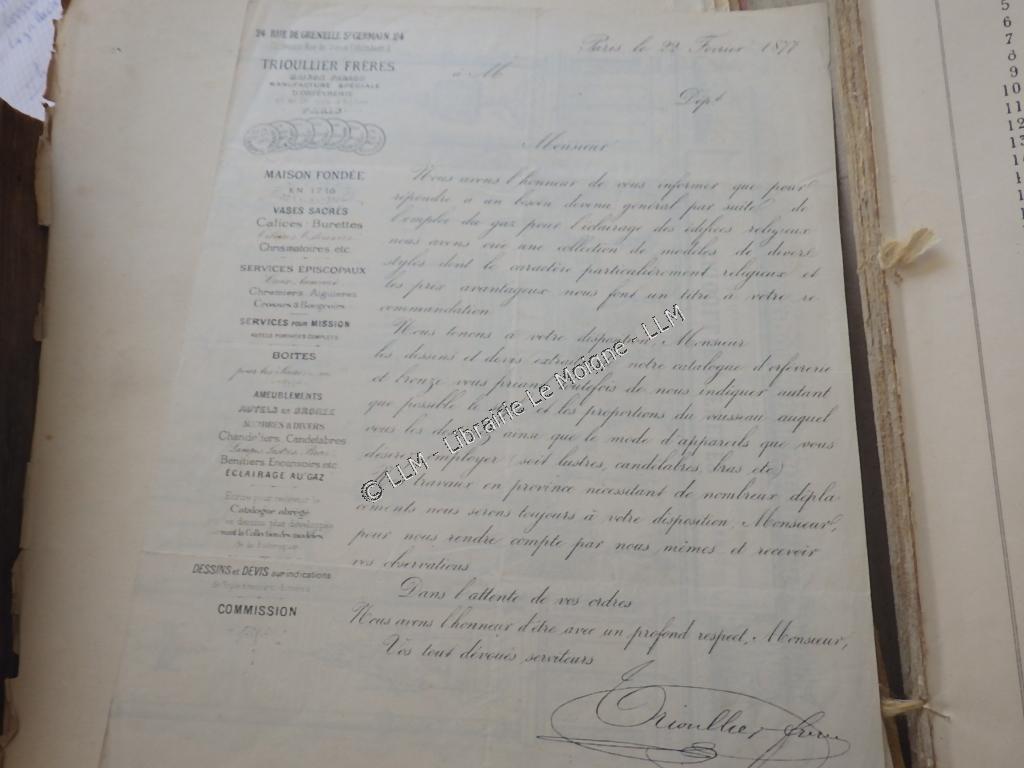 24 RUE DE GRENELLE St GERMAIN, 24
TRIOULLIER FRÈRES
MANUFACTURE SPÉCIALE
D'ORFÈVRERIE
PARIS
MAISON FONDÉE
EN 1716
VASES SACRÉS
Calices Burettes
Chrismatoires etc
SERVICES ÉPISCOPAUX
Chremiers Aiguières
Crosses & Bougeoirs
SERVICES POUR MISSION
AUTELS PORTATIFS COMPLETS
BOITES
pour les
AMEUBLEMENTS
AUTELS EN BRONZE
MARBRES & DIVERS
Chandeliers, Candélabres
Lampes Lustres Bras
Bénitiers Encensoirs etc
ÉCLAIRAGE AU GAZ
Catalogue abrégé
sont la Collection des modèles
de la Fabrique
DESSINS et DEVIS sur indications
COMMISSION
Paris le 22 Fevrier 1877
à M
Dépt
Monsieur
Nous avons l'honneur de vous informer que pour
répondre à un besoin devenu général par suite de
l'emploi du gaz pour l'éclairage des édifices religieux
nous avons créé une collection de modèles de divers
styles dont le caractère particulièrement religieux et
les prix avantageux nous font un titre à votre re
commandation
Nous tenons à votre disposition Monsieur
les dessins et devis extraits notre catalogue d'orfèvrerie
et bronze vous priant toutefois de nous indiquer autant
que possible le et les proportions du vaisseau auquel
vous les ainsi que le mode d'appareils que vous
désirez employer (soit lustres, candélabres, bras, etc)
travaux en province nécessitant de nombreux dépla
cements nous serons toujours à votre disposition, Monsieur,
pour nous rendre compte par nous mêmes et recevoir
vos observations
Dans l'attente de vos ordres
Nous avons l'honneur d'être avec un profond respect, Monsieur,
Vos tout dévoués serviteurs
Trioullier frères
© LLM - Librairie Le Moigne - LLM
5
6
7
8
9
10
11
12
13
14